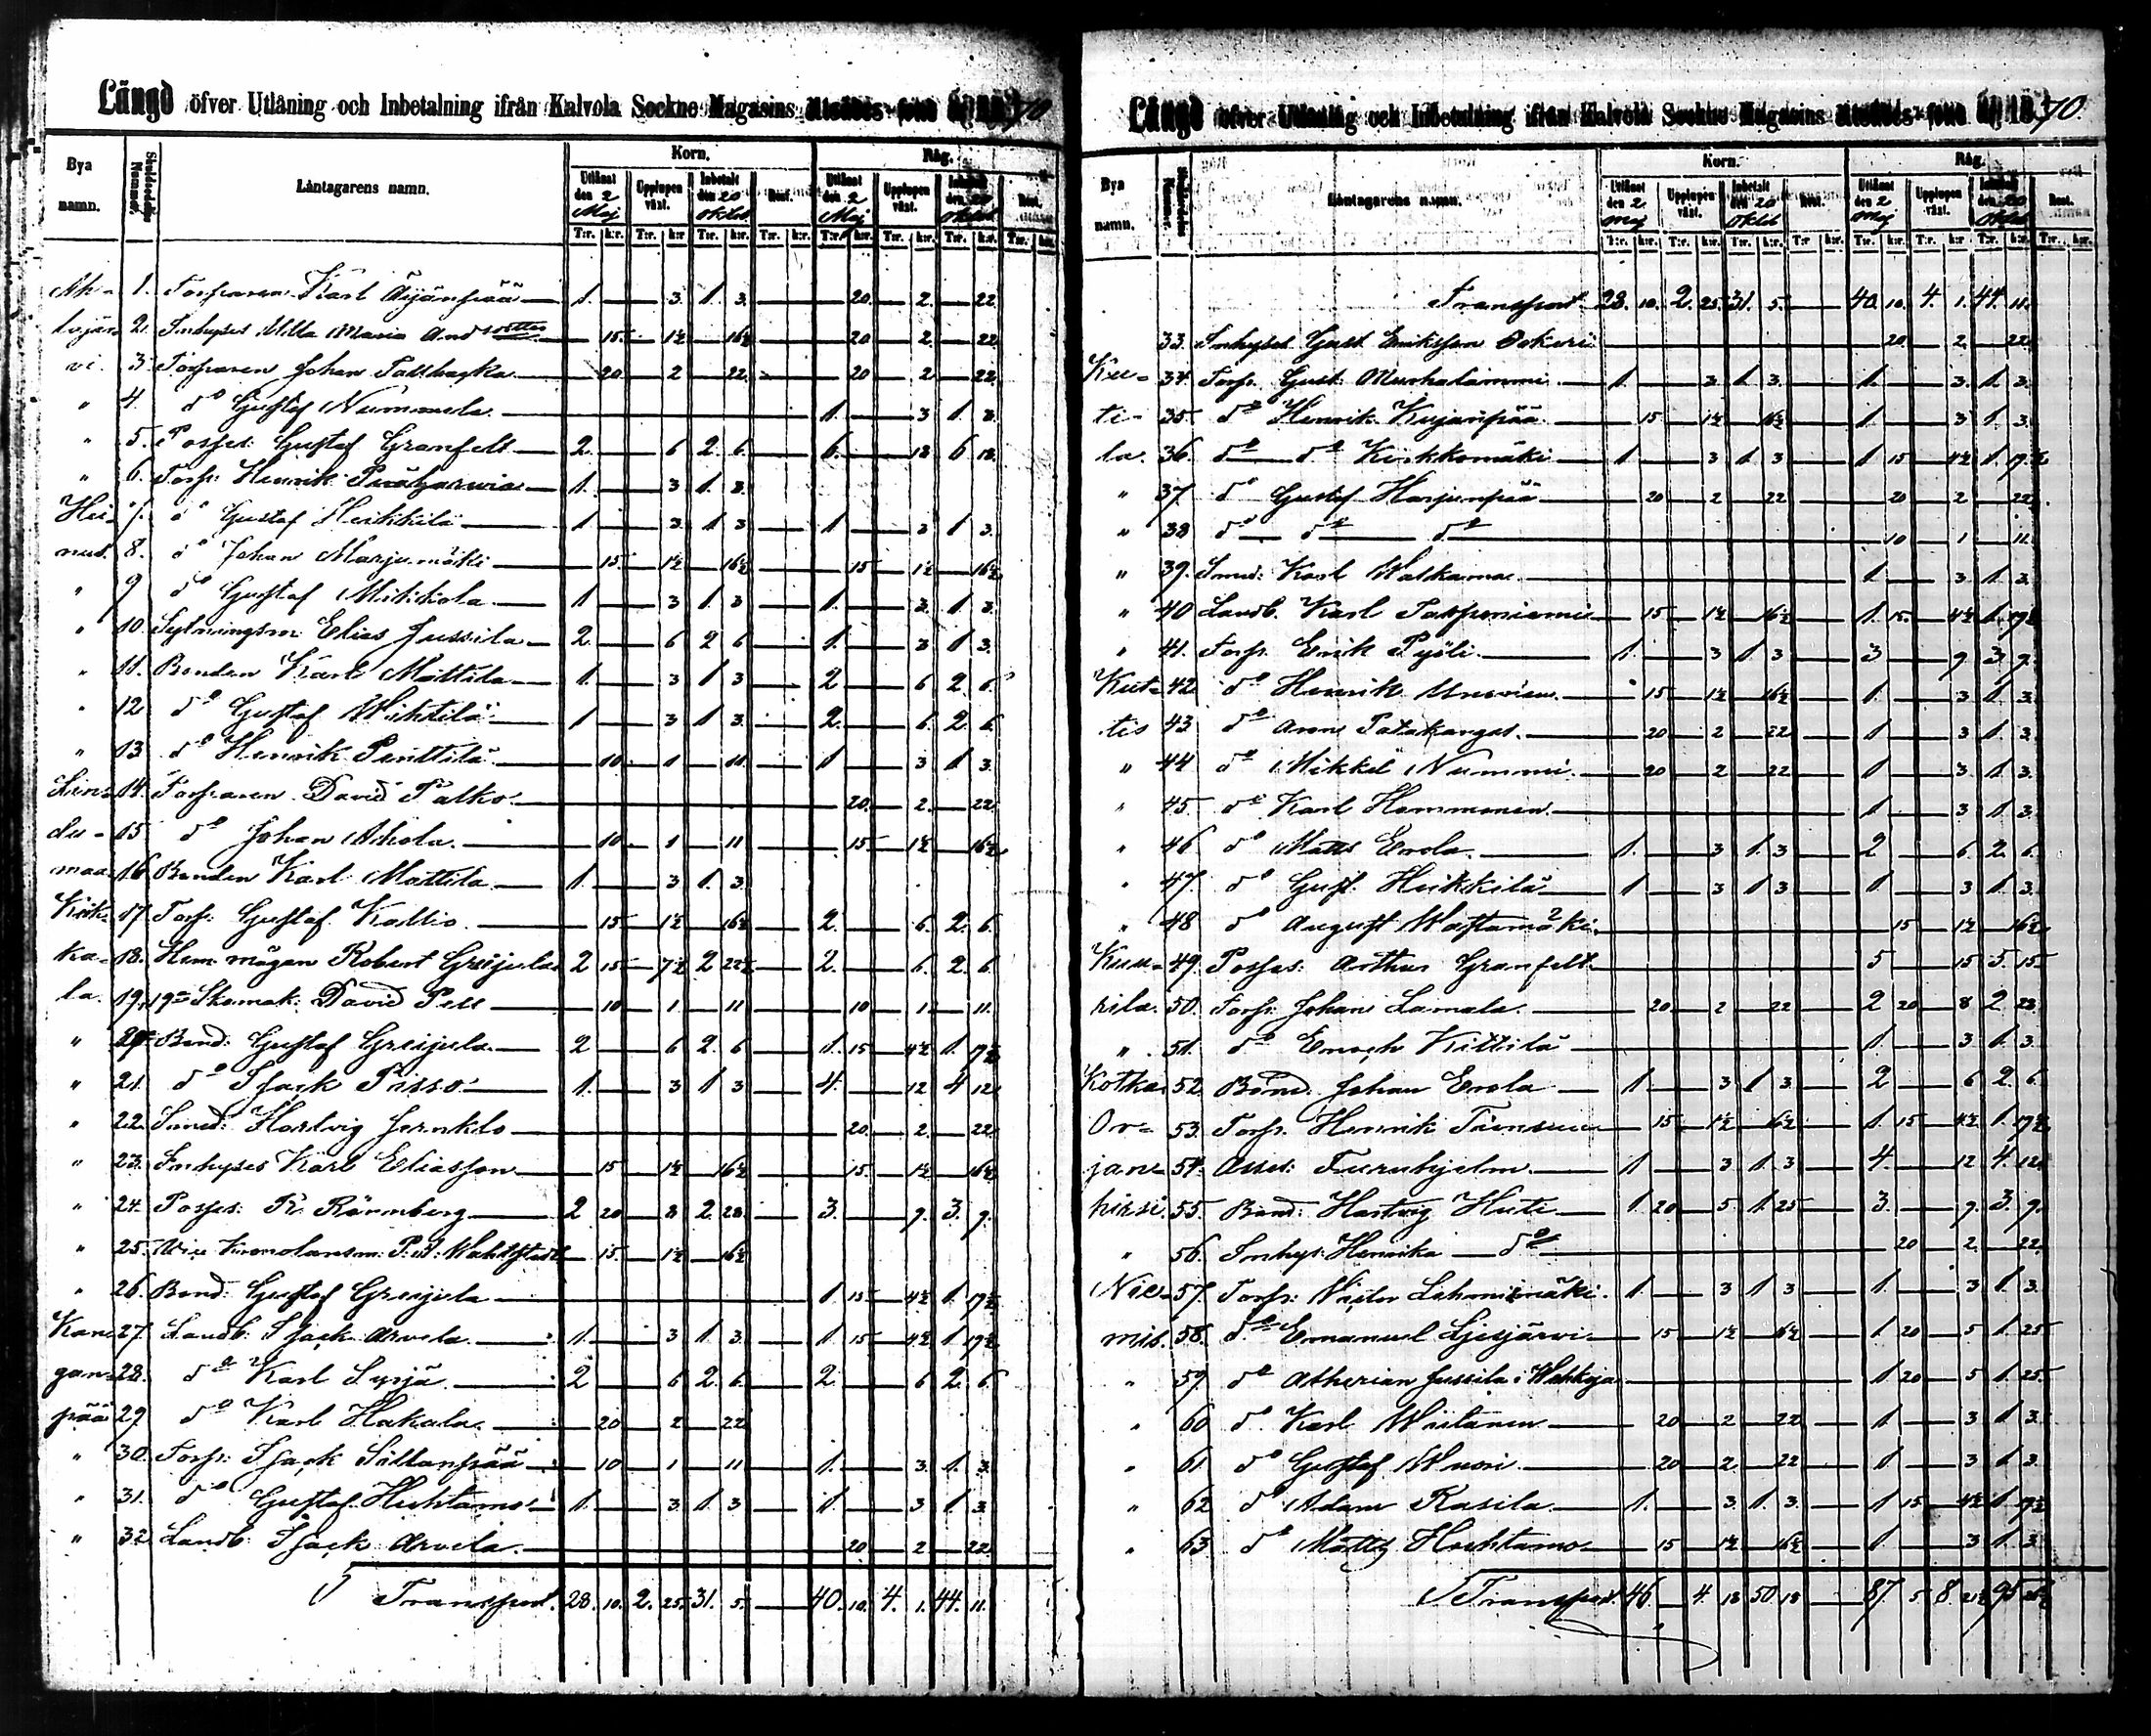 Längd öfver Utlåning och Inbetalning ifrån Kalvola Sockne Magasins 70
Bya namn. Låntagarens namn. Korn. Råg.
Utlånt den 2 Maj Upplupen växt. Inbetalt den 20 Oktob Rest. Utlånt den 2 Maj Upplupen växt. den 20 Oktob Rest.
T:r. k:r. T:r. k:r T:r. k:r. T:r. k:r. T:r. k:r. T:r. k:r. T:r. k:r. T:r. k:r.
1. Torparen Karl Äijänpää 1. 3. 1. 3. 20. 2. 22
2. Inhyses Maria 15. 1½ 16½ 20 2. 22
vi. 3. Torparen Johan 20. 2 22 20 2 22
" 4. do Gustaf Nummela 1. 3 1. 3.
" 5. Posses: Gustaf Granfelt 2. 6 2. 6. 6. 18 6 18.
" 6. Torp: Henrik 1. 3 1. 3.
Hei- 7. do Gustaf Heikkilä 1 3. 1 3 1 3 1 3.
nus. 8. do Johan Marjumäki 15. 1½ 16½ 15 1½ 16½
" 9 do Gustaf Mikkola 1 3 1. 3 1. 3. 1 3.
" 10. Elias Jussila 2. 6 2 6 1. 3 1 3.
" 11. Bonden Karl Mattila 1. 3 1 3 2 6 2. 6
" 12 do Gustaf 1 3 1 3. 2. 6. 2. 6
" 13 do Henrik Penttilä 10 1 11 1 3 1 3.
Lin- 14. Torparen David Palko 20. 2. 22
du- 15 do Johan Ahola 10. 1 11 15 1½ 16½
maa 16. Bonden Karl Mattila 1. 3 1. 3.
Kirk- 17. Torp: Gustaf Kallio 15 1½ 16½ 2. 6. 2. 6.
ka- 18. Hem mågen Robert Greijula 2 15 7½ 2 22½ 2. 6. 2 6.
la. 19. Skomak: David Pell 10 1 11 10 1 11.
" 20. Bond: Gustaf Greijula 2 6 2. 6 1. 15 4½ 1. 19½
" 21. do Isack Pisso 1. 3 1 3 4. 12 4 12
" 22. Smed: Hartvig Jernklo 20. 2. 22
" 23. Inhyses Karl Eliasson 15 1½ 16½ 15. 1½ 16½
" 24. Posses: Fr. Rönnberg 2 20 8 2. 28. 3. 9. 3. 9.
" 25. 15. 1½ 16½
" 26. Bond: Gustaf Greijula 1 15 4½ 1. 19½
Kan- 27. Landb: Isack Arvela 1. 3 1. 3. 1 15 4½ 1 19½
gan- 28. do Karl Syrjä 2 6 2. 6. 2. 6 2. 6
pää 29 do Karl Hakala 20 2 22
" 30. Torp: Isack Sillanpää 10 1 11 1. 3. 1. 3.
" 31. do Gustaf Huhtamo 1. 3 1. 3 1. 3 1 3
" 32 Landb Isack Arvela 20 2 22.
Transport. 28. 10. 2. 25. 31. 5. 40. 10. 4. 1. 44. 11.
Längd öfver Utlåning och Inbetalning ifrån Kalvola Sockne Magasins 1870.
Bya namn. Låntagarens namn. Korn. Råg.
Utlånt den 2 Maj Upplupen växt. Inbetalt den 20 Oktob Rest. Utlånt den 2 Maj Upplupen växt. den 20 Oktob Rest.
T:r. k:r. T:r. k:r. T:r. k:r. T:r k:r. T:r. k:r. T:r. k:r T:r. k:r. T:r. k:r.
Transport 28. 10. 2. 25. 31. 5. 40. 10. 4. 1. 44. 11.
33. Inhyses Gust. Eriksson 20. 2. 22
Keu- 34. Torp. Gust. 1. 3 1. 3. 1. 3. 1. 3.
ti- 35. do Henrik Kujanpää 15 1½ 16½ 1 3 1. 3.
la. 36. do do Kirkkomäki 1 3 1. 3 1 15 4½ 1. 19½
" 37. do Gustaf Harjunpää 20 2 22 20 2 22.
" 38 do do do 10 1 11.
" 39. Smed: Karl Walkama 1 3 1. 3
" 40 Landb. Karl 15 1½ 16½ 1. 15. 4½ 1. 19½
" 41. Torp. Erik Pyöli 1. 3 1. 3 3 9 3. 9.
Kut- 42 do Henrik 15 1½ 16½ 1. 3 1. 3.
tis 43. do Patakangas. 20 2 22 1 3 1. 3.
" 44 do Mikkel Nummi 20 2 22 1 3 1. 3
" 45. do Karl Hemmonen 1 3 1. 3.
" 46 do Matts Erola 1. 3 1. 3 2 6. 2. 6.
" 47. do Gust. Heikkilä 1 3 1 3 1. 3 1. 3.
" 48 do August Wastamäki 15 1½ 16½
Kuu- 49. Posses: Arthur Granfelt 5 15 5. 15
rila. 50. Torp: Johan Lamala 20 2 22 2 20 8 2 28
" 51. do Enoch Kittilä 1. 3 1. 3
Kotka 52. Bond. Johan Erola 1 3 1 3 2 6 2 6
Or- 53. Torp. Henrik 15 1½ 16½ 1. 15 4½ 1. 19½
jan- 54. Asses: Furuhjelm 1 3 1. 3 4. 12 4. 12
hirsi. 55. Bond: Hartvig Huti 1. 20 5 1. 25 3. 9. 3. 9.
" 56. Inhys: Henrika do 20 2. 22
Nie- 57. Torp: 1. 3 1 3 1. 3 1 3.
mis. 58. do Emanuel 15 1½ 16½ 1 20 5 1. 25
" 59 do Jussila i 1 20 5 1. 25
" 60 do Karl 20 2 22 1 3 1. 3.
" 61 do Gustaf Wuori 20 2 22 1 3 1. 3.
" 62 do Adam Rasila 1. 3. 1. 3. 1 15 4½ 1. 19½
" 63 do Matts Huhtamo 15 1½ 16½ 1 3 1. 3
Transport 46. 4. 18 50 18 87. 5. 8. 21½ 95